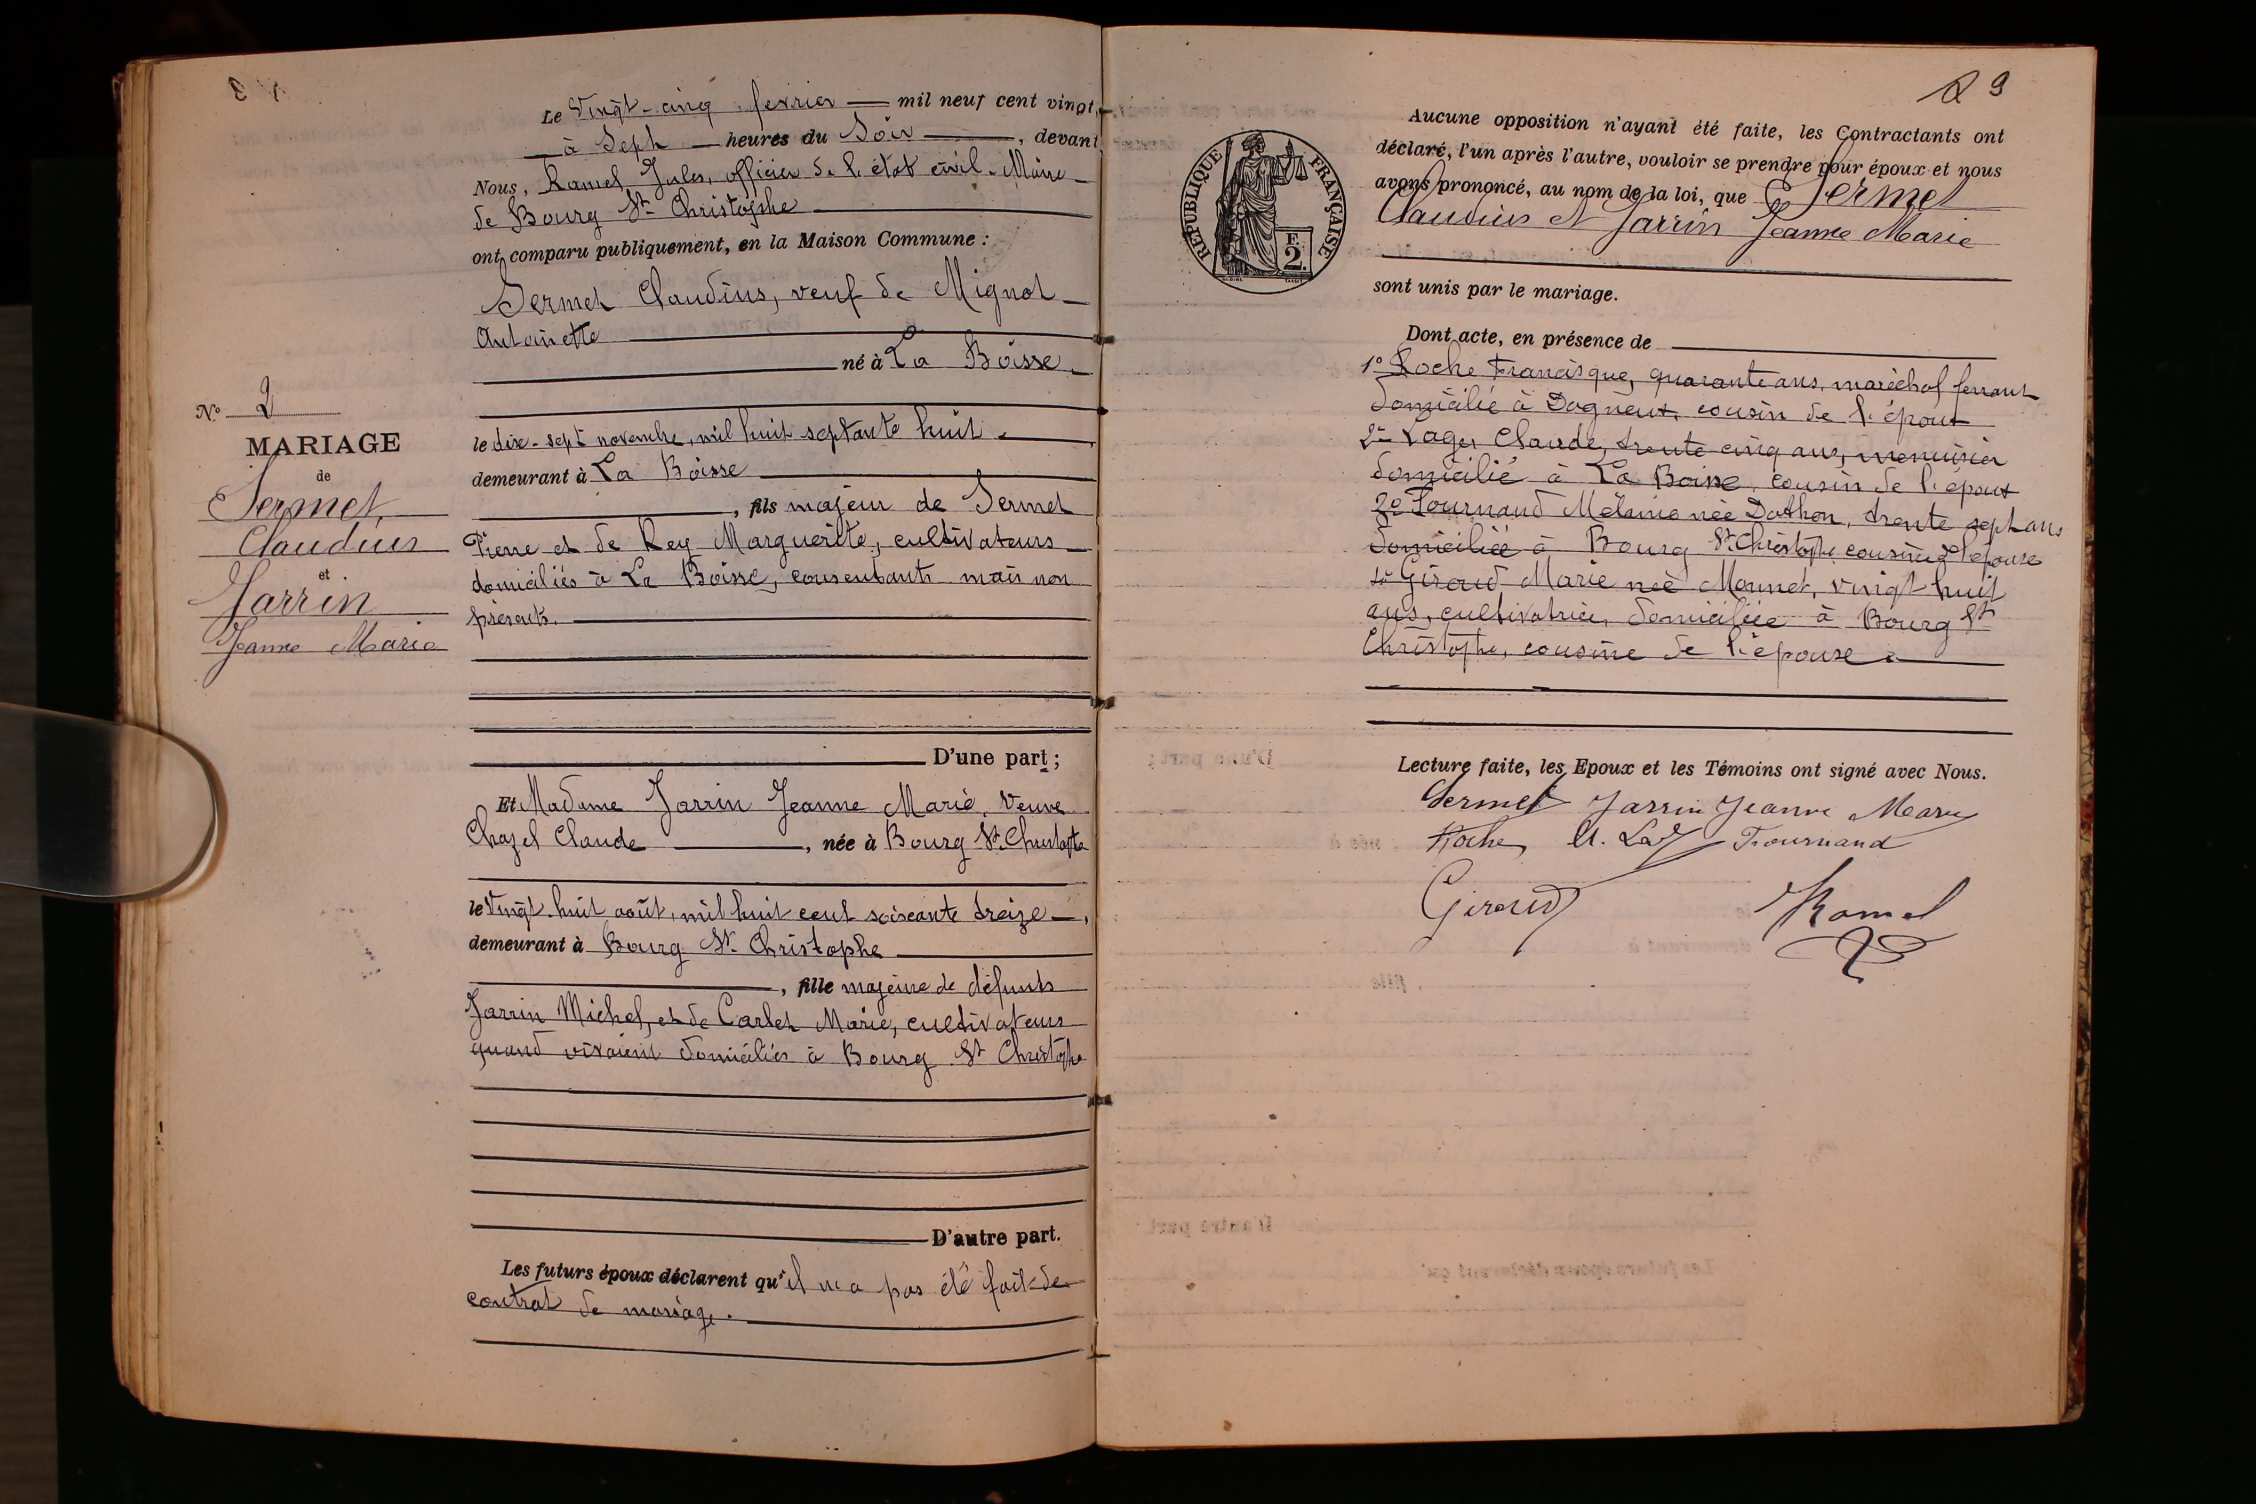 Le Vingt-cinq fevrier mil neuf cent vingt,
à Sept heures du Soir, devant
Nous, Ramel Jules, officier de l'état civil. Maire
de Bourg St Christophe
ont comparu publiquement, en la Maison Commune :
Sermet Claudius, veuf de Mignot
Antoinette
né à La Boisse
le dix-sept novembre, mil huit septante huit
demeurant à La Boisse
, fils majeur de Sermet
Pierre et de Rey Marguerite, cultivateurs
domiciliés à La Boisse, consentants mais non
présents.
No 2
MARIAGE
de
Sermet
Claudius
et
Jarrin
Jeanne Marie
D'une part ;
Et Madame Jarrin Jeanne Marie, Veuve
Chazel Claude, née à Bourg St Christophe
le Vingt huit août, mil huit cent soixante treize,
demeurant à Bourg St Christophe
, fille majeure de défunts
Jarrin Michel, et de Carlet Marie, cultivateurs
quand vivaient domiciliés à Bourg St Christophe
D'autre part.
Les futurs époux déclarent qu'il n'a pas été fait de
contrat de mariage.
29
Aucune opposition n'ayant été faite, les Contractants ont
déclaré, l'un après l'autre, vouloir se prendre pour époux et nous
avons prononcé, au nom de la loi, que Sermet
Claudius et Jarrin Jeanne Marie
sont unis par le mariage.
RÉPUBLIQUE FRANÇAISE
F.
2.
Dont acte, en présence de
1o Roche Francisque, quarante ans, maréchal ferrant
domicilié à Dagneux, cousin de l'époux
2o Lager Claude, trente cinq ans, menuisier
domicilié à La Boisse, cousin de l'époux
3o Tournand Mélanie née Dathon, trente sept ans
domiciliée à Bourg St Christophe cousine de l'épouse
4o Giroud Marie née Monnet, vingt huit
ans, cultivatrice, domiciliée à Bourg St
Christophe, cousine de l'épouse
Lecture faite, les Epoux et les Témoins ont signé avec Nous.
Sermet Jarrin Jeanne Marie
Roche Tournand
Giroud Ramel